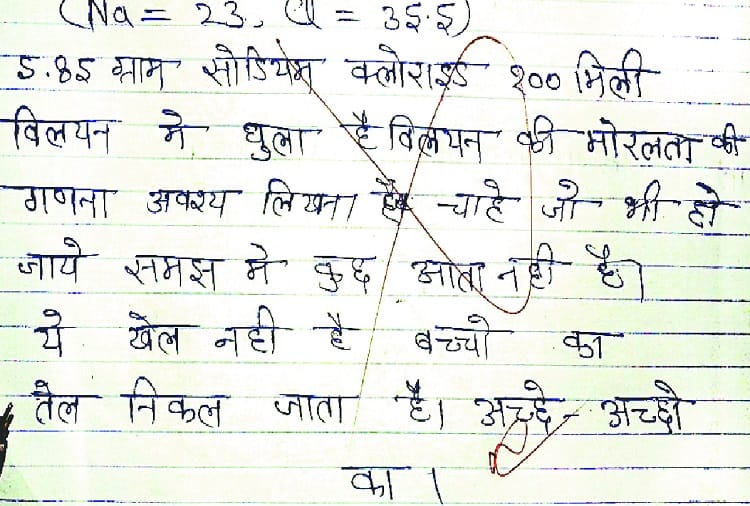 (Na = 23, Cl = 35.5)
5.85 ग्राम सोडियम क्लोराइड १०० मिली
विलयन मे घुला है विलयन की मोरलता की
गणना अवश्य लिखना है चाहे जो भी हो
जाये समझ मे कुछ आता नही है।
ये खेल नही है बच्चो का
तेल निकल जाता है। अच्छे - अच्छो
का ।